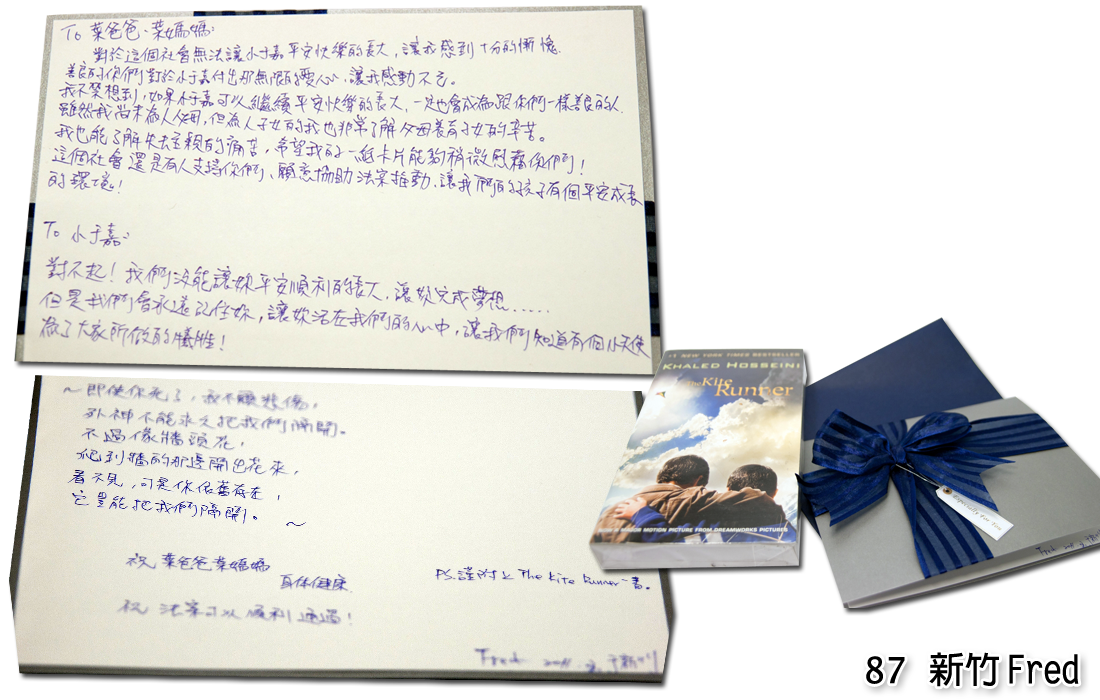 To 葉爸爸、葉媽媽:
對於這個社會無法讓小于嘉平安快樂的長大,讓我感到十分的慚愧.
善良的你們對於小于嘉付出那無限的愛心,讓我感動不已。
我不禁想到,如果小于嘉可以繼續平安快樂的長大,一定也會成為跟你們一樣善良的人.
雖然我尚未為人父母,但為人子女的我也非常了解父母養育子女的辛苦。
我也能了解失去至親的痛苦,希望我的一紙卡片能夠稍微慰藉你們!
這個社會還是有人支持你們、願意協助法案推動、讓我們的孩子有個平安成長
的環境!
To 小于嘉:
對不起!我們沒能讓妳平安順利的長大,讓妳完成夢想.....
但是我們會永遠記住妳,讓妳活在我們的心中,讓我們知道有個小天使
為了大家所做的犧牲!
~即使你死了,我不願悲傷,
死神不能永久把我們隔開。
不過像牆頭花,
爬到牆的那邊開出花來,
看不見,可是你依舊存在,
它豈能把我們隔開。~
祝 葉爸爸葉媽媽
身体健康.
P.S.謹附上 The Kite Runner 一書。
祝 法案可以順利通過!
Fred 2011. 于新竹
#1 NEW YORK TIMES BESTSELLER
KHALED HOSSEINI
The Kite
Runner
NOW A MAJOR MOTION PICTURE FROM DREAMWORKS PICTURES
Especially For You
Fred
87 新竹 Fred